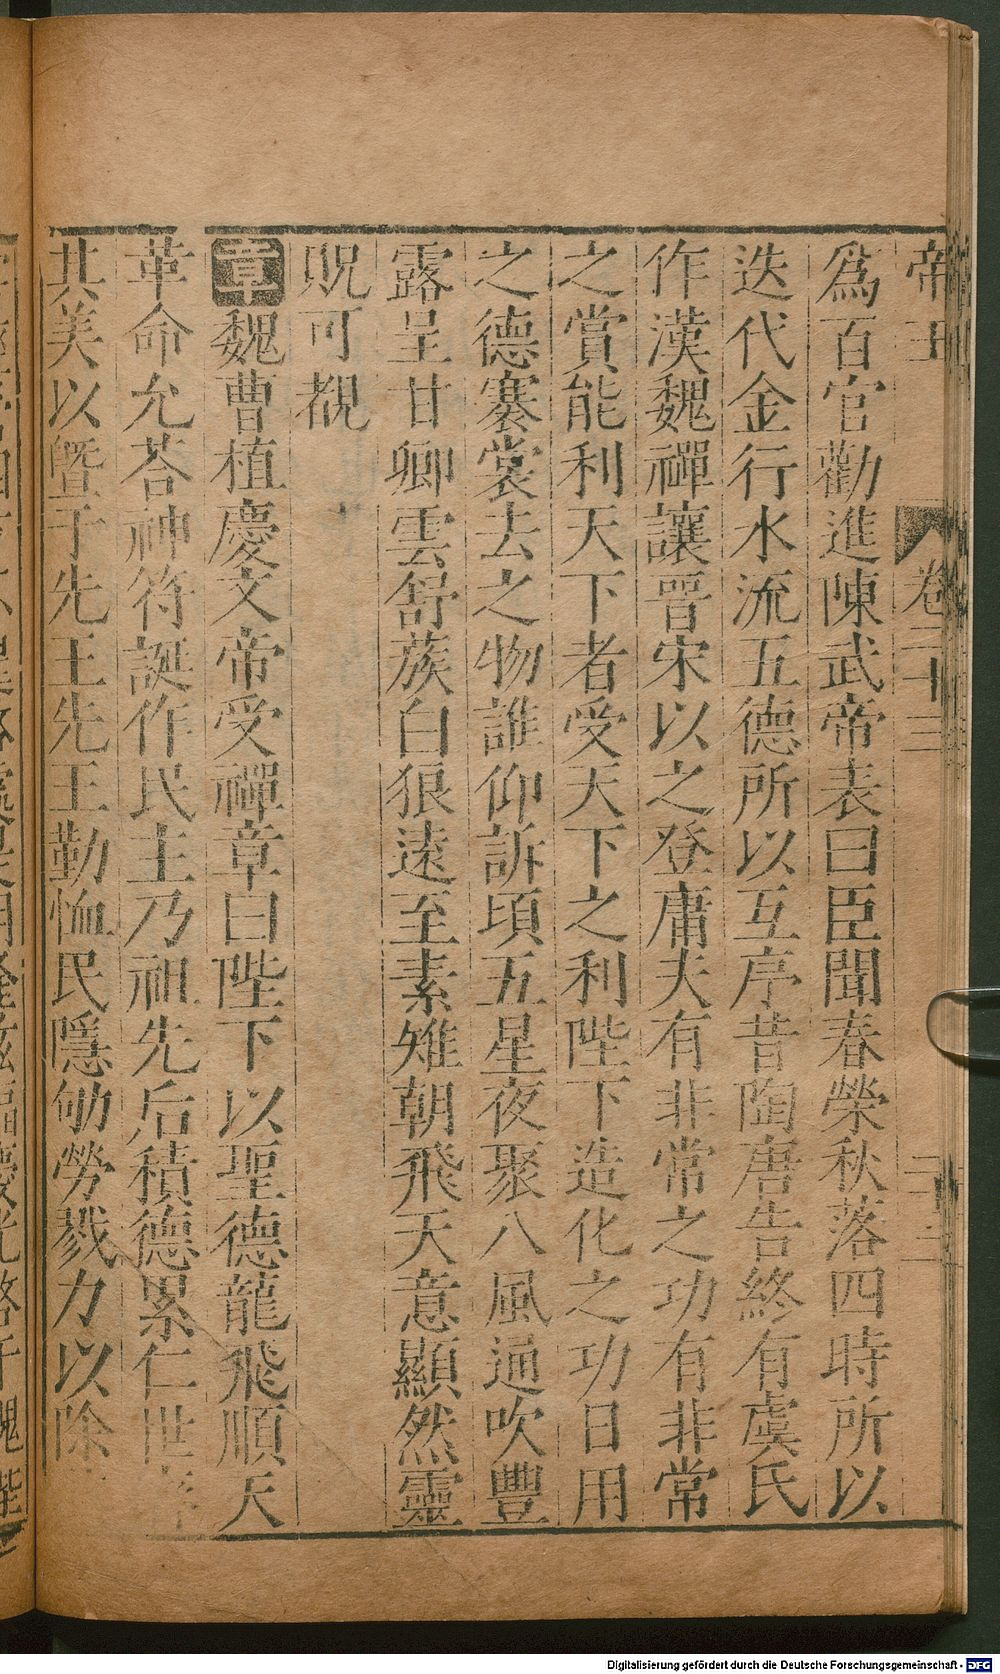 帝王 卷二十三 二十二
爲百官勸進陳武帝表曰臣聞春榮秋落四時所以
迭代金行水流五德所以互序昔陶唐告終有虞氏
作漢魏禪讓晉宋以之登庸夫有非常之功有非常
之賞能利天下者受天下之利陛下造化之功日用
之德褰裳去之物誰仰訴頃五星夜聚八風通吹豐
露呈甘卿雲舒蔟白狼遠至素雉朝飛天意顯然靈
貺可覩
章魏曹植慶文帝受禪章曰陛下以聖德龍飛順天
革命允荅神符誕作民主乃祖先后積德累仁世
其美以暨于先王先王勤恤民隱劬勞戮力以除
Digitalisierung gefördert durch die Deutsche Forschungsgemeinschaft - DFG